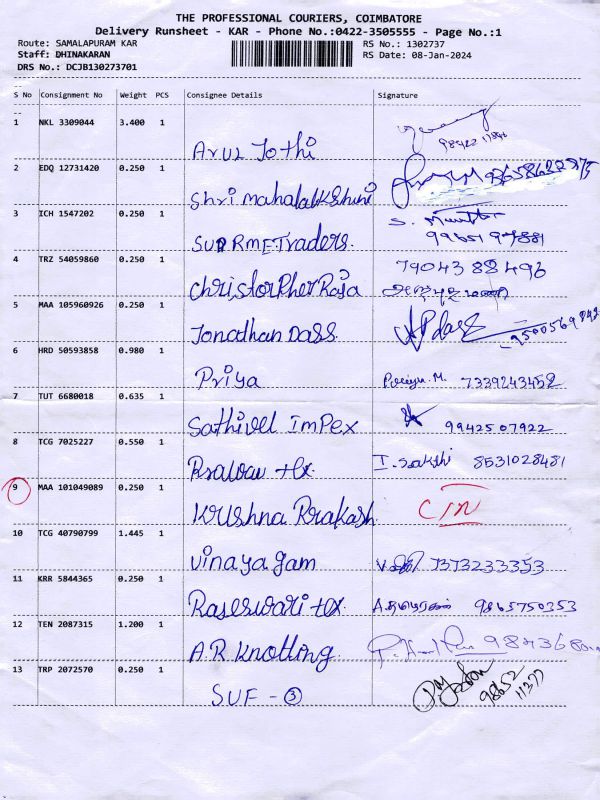 THE PROFESSIONAL COURIERS, COIMBATORE
Delivery Runsheet - KAR - Phone No.:0422-3505555 - Page No.:1
Route: SAMALAPURAM KAR RS No.: 1302737
Staff: DHINAKARAN RS Date: 08-Jan-2024
DRS No.: DCJB130273701
S No Consignment No Weight PCS Consignee Details Signature
1 NKL 3309044 3.400 1 Arul Jothi
2 EDQ 12731420 0.250 1 Shri Mahalakshmi
3 ICH 1547202 0.250 1 SUPRME Traders.
4 TRZ 54059860 0.250 1 Christopher Raja 7904388496
5 MAA 105960926 0.250 1 Jonathan Dass.
6 HRD 50593858 0.980 1 Priya 7339243452
7 TUT 6680018 0.635 1 Sathivel Impex 9942507922
8 TCG 7025227 0.550 1 tex. I. Sakthi 8531028481
9 MAA 101049089 0.250 1 Krushna Prakash
10 TCG 40790799 1.445 1 Vinayagam 7373233353
11 KRR 5844365 0.250 1 Raseswari tex. 9865750353
12 TEN 2087315 1.200 1 A.R Knotting
13 TRP 2072570 0.250 1 SUF - 3